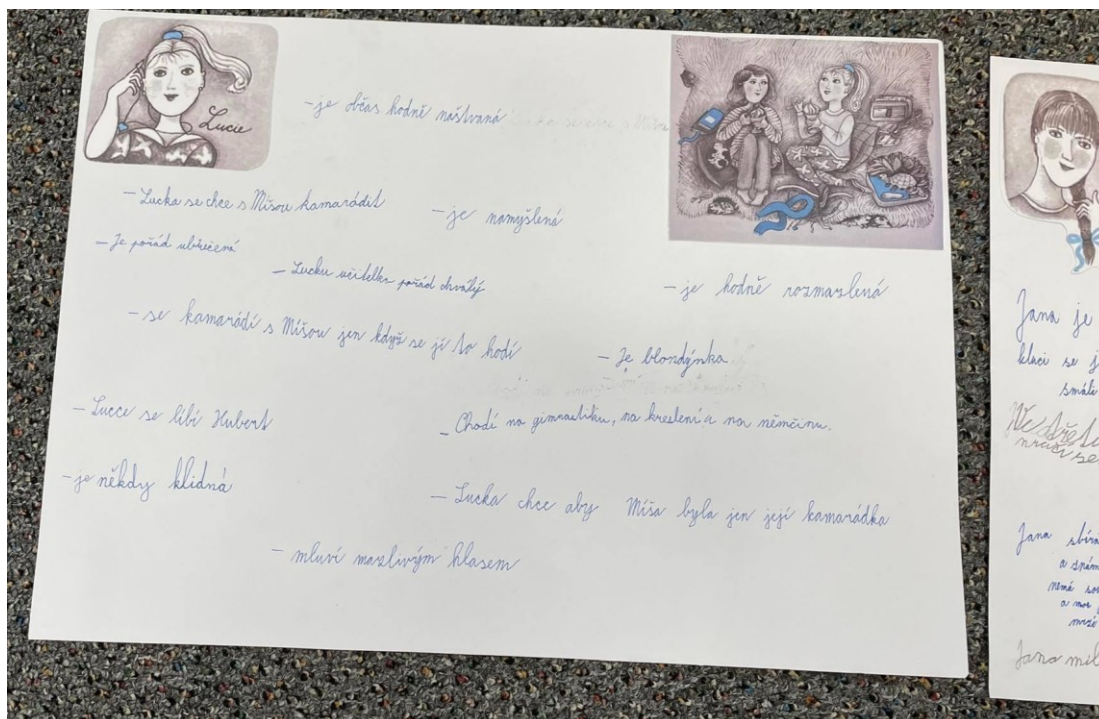 Lucie
- je občas hodně naštvaná
- Lucka se chce s Míšou kamarádit
- je namyšlená
- Je pořád ubrečená
- Lucku učitelka pořád chválý
- je hodně rozmazlená
- se kamarádí s Míšou jen když se jí to hodí
- Je blondýnka
- Lucce se líbí Hubert
- Chodí na gimnastiku, na kreslení a na němčinu.
- je někdy klidná
- Lucka chce aby Míša byla jen její kamarádka
- mluví mazlivým hlasem
Jana je
kluci se
Jana
a
nemá
a
Jana